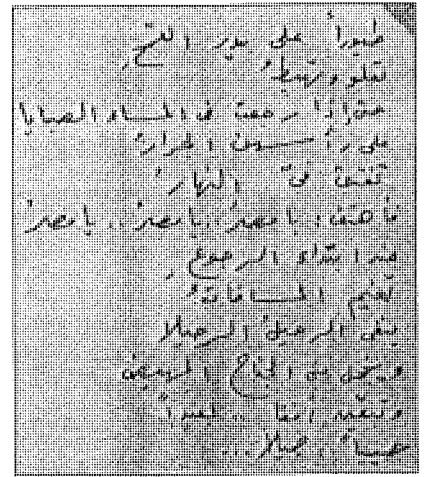 طيوراً على بيدر القمح
تعلو وتهبط
حتى إذا رجعت في المساء الصبايا
على رأسهن الجرار
في النهار
فأهتف: يا مصر، يا مصر.. يا مصر
منذ ابتداء الرجوع
المسافات
يبقى الرحيل الرحيلا
الجناح المهيض
وتبقين أيضاً .. بعيداً
جميلا..